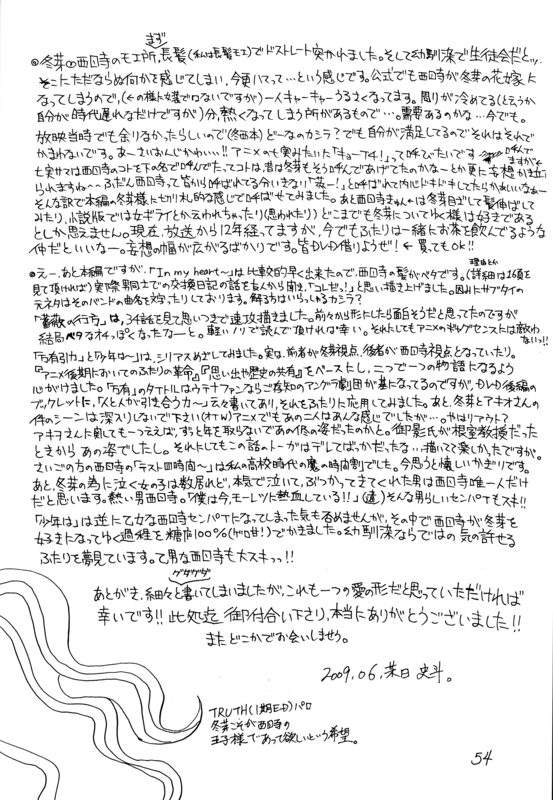 まず
◎冬芽の西園寺のモエ所、長髪(私は長髪モエ)でドストレート突かれました。そして幼馴染で生徒会だとッ…
そこにただならぬ何かを感じてしまい、今更ハマって…という感じです。公式でも西園寺が冬芽の花嫁に
なってしまうので、(←の様に女装でロないですが)一人キャーキャーうるさくなってます。周りが冷めてる(と云うか
自分が時代遅れなだけですが)分、熱くなってしまう所があるもので…。需要あるのかな…今でも。
放映当時でも余りなかったらしいので(冬西本)どーなのカシラ?でも自分が満足してるのでそれはそれで
かまわないです。あーさいおんじかわいい!!アニメのも実みたいた「キョーイチ!」って呼びたいです 呼んで
ますがく
七実サマは西園寺のコトを下の名で呼んでたってコトは、昔は冬芽もそう呼んであげてたのかなーとか更に妄想かき立て
られますね〜。ふだん西園寺って皆から呼ばれてる分いきなり「莢ー!」と呼ばれて内心ドキドキしてたらかわいいなぁー
そんな訳で本編の冬芽様に切り札的な感じで呼ばせてみました。あと西園寺ちゃんは冬芽目ざして髪伸ばして
みたり、小説版では女ギライとか云われちゃったり(思われたり)どこまでも冬芽についてゆく様は好きである
としか思えません。現在、放送から12年経ってますが、今でもふたりは一緒にお茶を飲んでるような
仲だといいなー。妄想の幅が広がるばかりです。皆DVD借りようぜ!←買てもOk!!
◎えー、あと本編ですが、「In my heart〜」は比較的早く出来たので、西園寺の髪がベタです。(詳細は16頁を
理由とか
見て頂ければ)実際男同士での交換日記の話を友人から聞き、「コレだっ!」と思い描き上げました。因みにサブタイの
元ネタはそのバンドの曲名を文字ったりしております。解る方はいらっしゃるカシラ?
「薔薇の行方」は、34話を見て思いつきで速攻描きました。前々から形にしたら面白そうだと思ってたのですが
結局ベタなオチっぽくなったなーと。軽いノリで読んで頂ければ幸い。それにしてもアニメのギャグセンスには敵わ
ないっ!!
「万有引力」と「少年は〜」は、シリアスめざしてみました。実は、前者が冬芽視点、後者が西園寺視点となっていたり。
『アニメ後期においてのふたりの革命』『思い出や歴史の共有』をベースにし、二つで一つの物語になるよう
心がけました。「万有」のタイトルはウテナファンならご存知のアンケラ劇団が基になってるのですが、DVD後編の
ブックレットに、「人と人が引き合う力〜」云々書いてあり、それをふたりに応用してみました。あと、冬芽とアキオさんの
件のシーンは深入りしないで下さい(オイw)アニメでもあの二人はあんな感じでしたが…。やはりアウト?
アキオさんに関してもーつええば、ずっと年を取らないであの位の姿だったのかと。御影氏が根室教授だった
ときから あの姿でしたし。それにしてもこの話のトーがはデレてばっかだったな…描いてて楽しかったですが。
さいごの方の西園寺の「テスト四時間〜」は私の高校時代の魔の時間割でした。今思うと懐しいかぎりです。
あと、冬芽の為に泣く女の子は数居れど、本気で泣いて、ぶつかってきてくれた男は西園寺唯一人だけ
だと思います。熱い男西園寺。「僕は今、モーレツに熱血している!!」(違)そんな男らしいセンパイもスキ!!
「少年は」は逆に乙女な西園寺センパイになってしまった気も否めませんが、その中で西園寺が冬芽を
好きになってゆく過程を糖度100%(ゲロ甘!)でかきました。幼馴染ならではの気の許せる
ふたりを夢見ています。乙男な西園寺も大スキっっ!!
グダグダ
あとがき、細々と書いてしまいましたが、これも一つの愛の形だと思っていただければ
幸いです!!此処迄御付合い下さり、本当にありがとうございました!!
またどこかでお会いしませう。
2009.06.茉日 史斗。
TRUTH(1期ED)パロ
冬芽こそが西園寺の
王子様であって欲しいという希望。
54